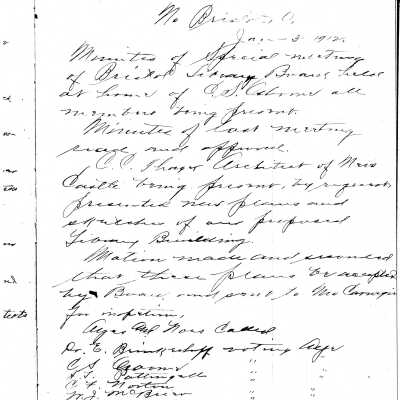 No Bristol O.
Jan - 3 1912.
Minutes of Special meeting
of Bristol Library Board held
at home of C.S. all
members being present.
Minutes of last meeting
read and approved.
C.C. Thayer Architect of New
Castle being present, by request,
presented new plans and
sketches of our proposed
Library Building.
Motion made and seconded
that these plans be accepted
by Board and sent to Mr Carnegie
for inspection,
Ayes and Noes Called
Dr. E. Brinkerhoff voting Aye
C.S. " "
" "
C.H. Norton " "
M.J. McBrier "